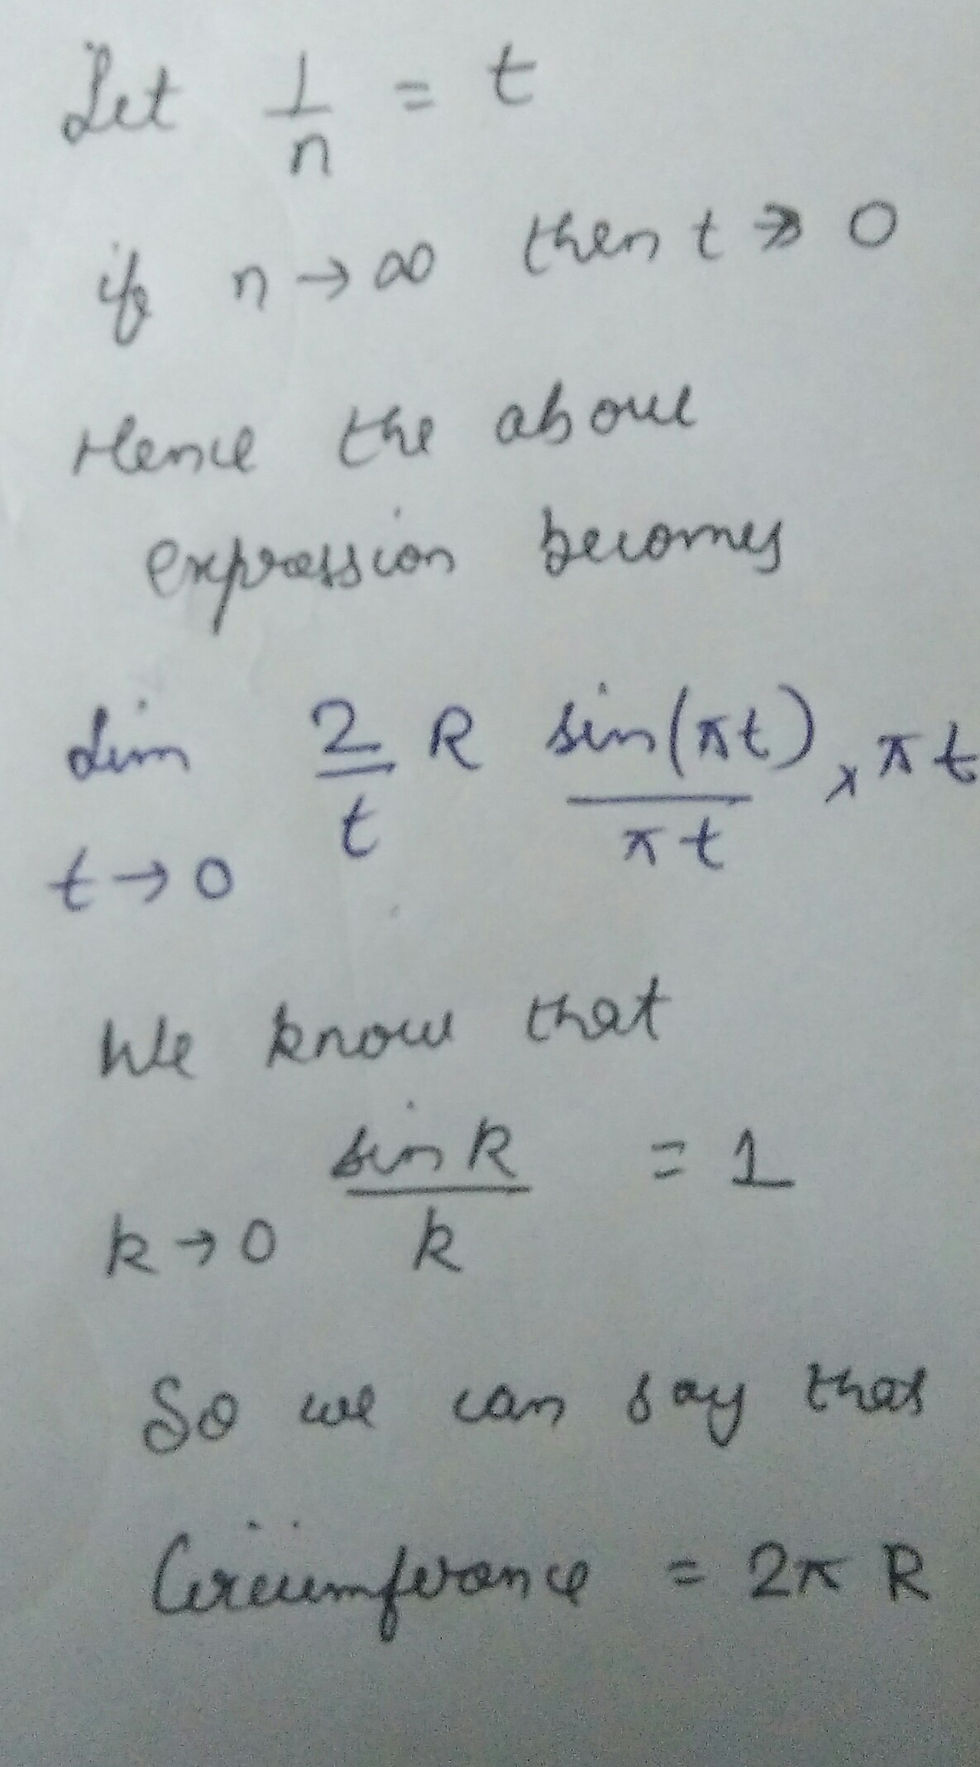 Let 1/n = t
if n → ∞ then t → 0
Hence the above
expression becomes
Lim t→0 2/t R sin(πt)/πt × πt
We know that
k→0 sin k/k = 1
So we can say that
Circumferance = 2π R